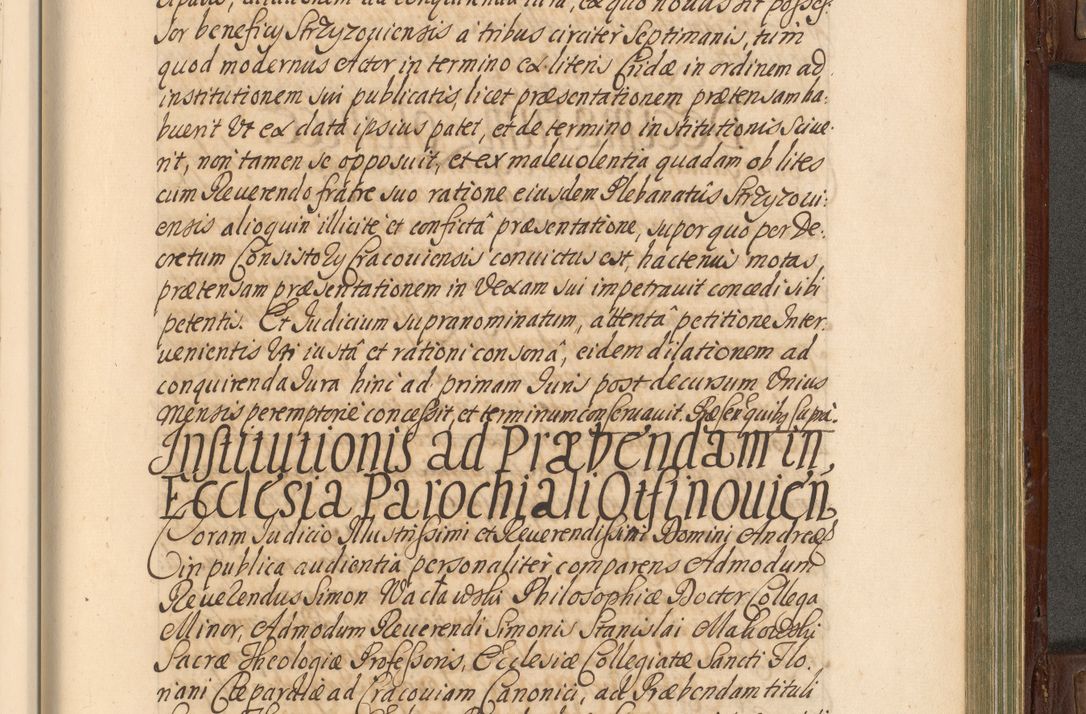 spatio, dilationem ad conquirenda iura, ex quo novus sit posses,
sor beneficy Strzyzouiensis a tribus circiter septimanis, tum
quod modernus Actor in termino ex literis Cridæ in ordinem ad
institutionem sui publicatis, licet præsentationem prætensam ha,
buerit Vt ex data ipsius patet, et de termino institutionis sciue,
rit, non tamen se opposuit, et ex maleuolentia quadam ob lites
cum Reuerendo fratre suo ratione eiusdem Plebanatûs Strzyzoui,
ensis alioquin illicitè et confictâ præsentatione, super quo per De,
cretum Consistory Cracouiensis conuictus est, hactenus motas
prætensam præsentationem in Vexam sui impetrauit concedi sibi
petentis. Et Iudicium supranominatum, attentâ petitione Inter,
uenientis Vti iustâ et rationi consonâ, eidem dilationem ad
conquirenda Iura hinc ad primam Iuris post decursum Vnius
Mensis peremptoriè concessit, et terminum conseruauit. Præsen: quibus supra.
Institutionis ad Præbendam in
Ecclesia Parochiali Otfinouien
Coram Iudicio Illustrissimi et Reuerendissimi Domini Andreæ
in publica audientia personaliter comparens Admodum
Reuerendus Simon Wacławski Philosophiæ Doctor Collega
Minor, Admodum Reuerendi Simonis Stanislai Makowski
Sacræ Theologiæ Professoris, Ecclesiæ Collegiatæ Sancti Flo,
riani Clepardiæ ad Cracouiam Canonici, ad Præbendam tituli